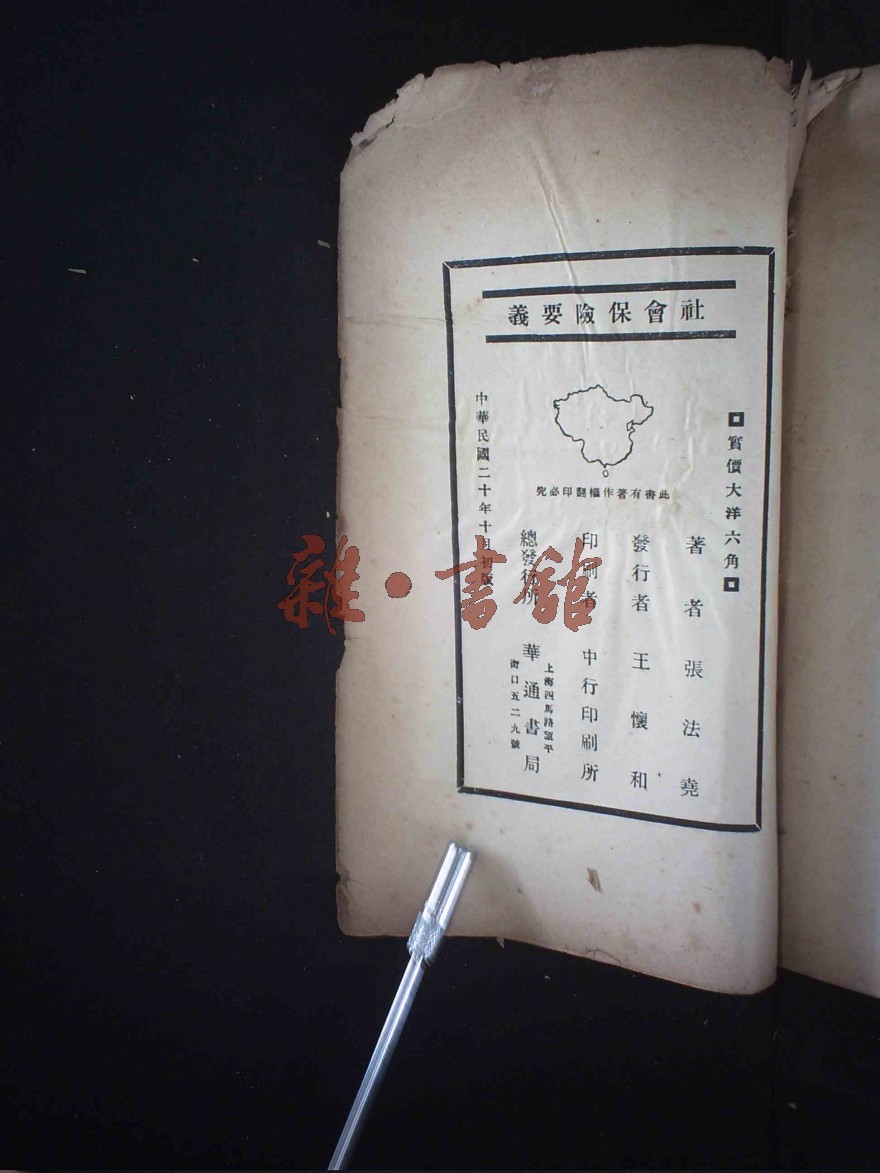 社會保險要義
實價大洋六角
此書有著作權翻印必究
著者 張法堯
發行者 王懷和
印刷者 中行印刷所
總發行所 華通書局
上海四馬路望平
街口五二九號
中華民國二十年十月初版
雜·書館